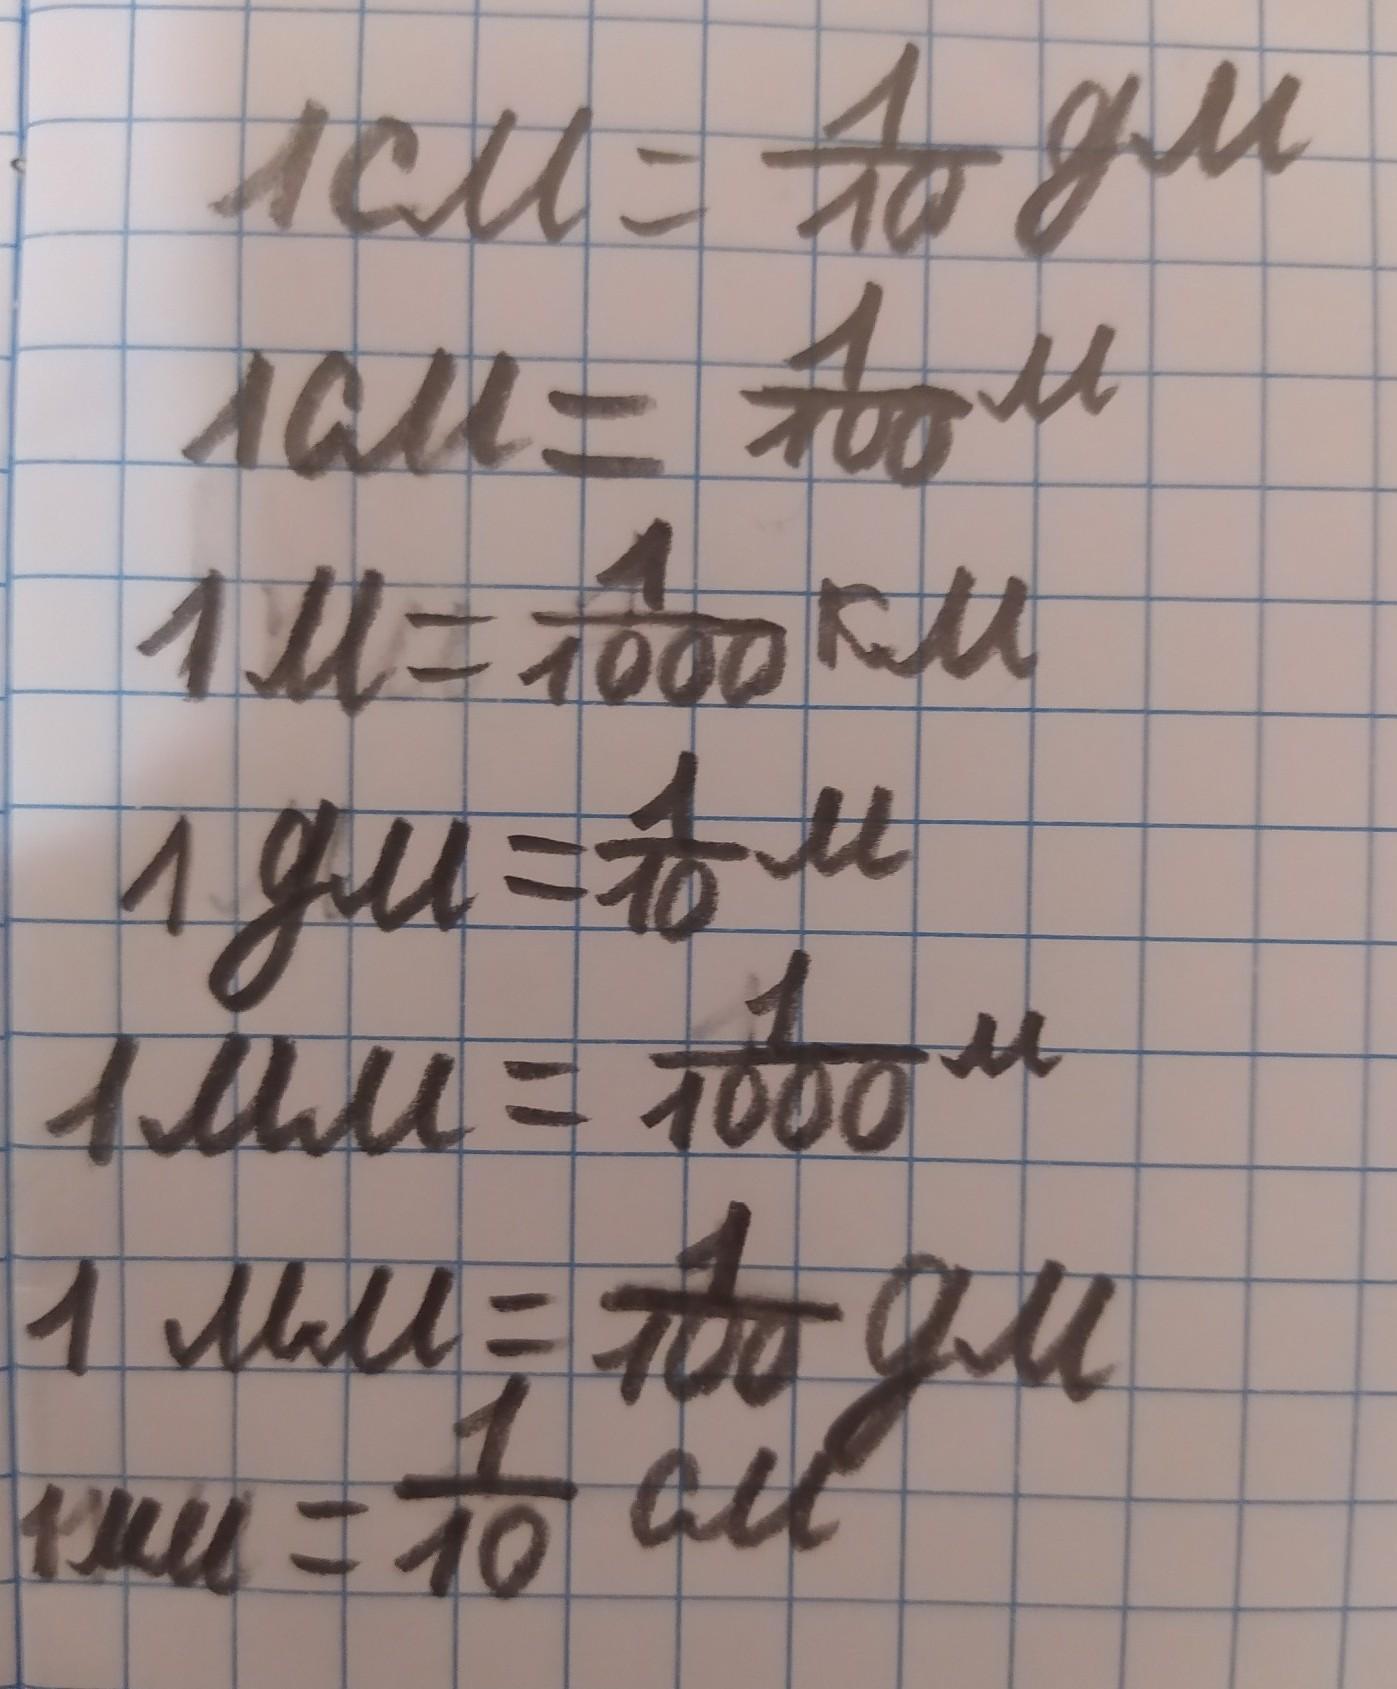 1см = 1/10 дм
1см = 1/100 м
1 м = 1/1000 км
1 дм = 1/10 м
1 мм = 1/1000 м
1 мм = 1/100 дм
1мм = 1/10 см